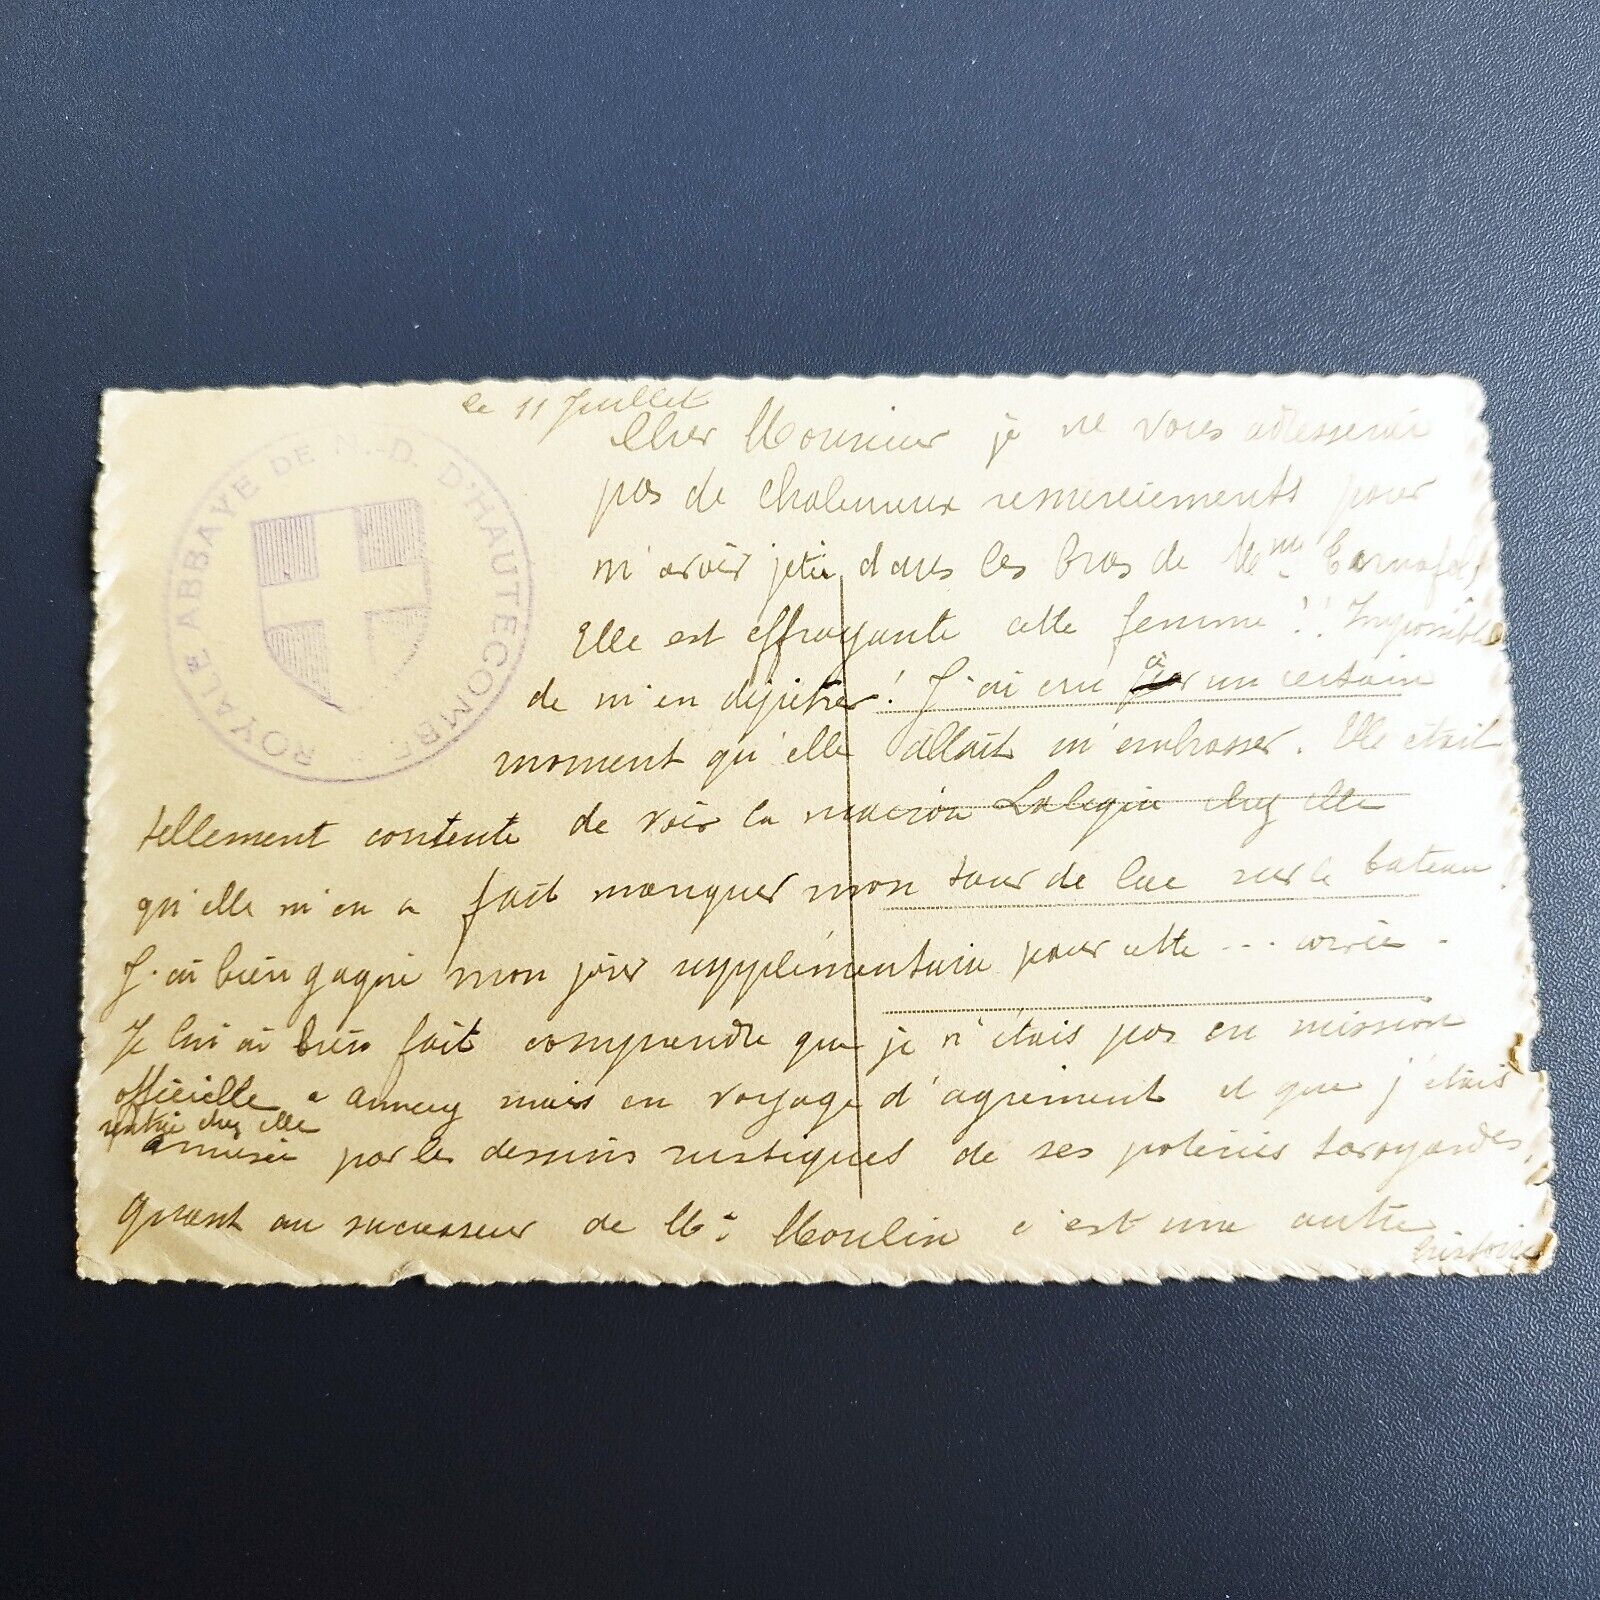 ROYALE ABBAYE DE N.-D. D'HAUTECOMBE
le 11 Juillet
Cher Monsieur je ne vous adresserai
pas de chaleureux remerciements pour
m'avoir jetée dans les bras de Mme
Elle est effrayante cette femme!! Impossible
de m'en dépêtrer! J'ai cru à un certain
moment qu'elle allait m'embrasser. Elle était
tellement contente de voir la maison chez elle
qu'elle m'en a fait manquer mon tour de lac sur le bateau.
J'ai bien gagné mon jour supplémentaire pour cette ... corvée.
Je lui ai bien fait comprendre que je n'étais pas en mission
officielle à annecy mais en voyage d'agrément et que j'étais
rentrée chez elle
amusée par les dessins rustiques de ses poteries savoyardes,
quant au successeur de Mr Moulin c'est une autre
histoire